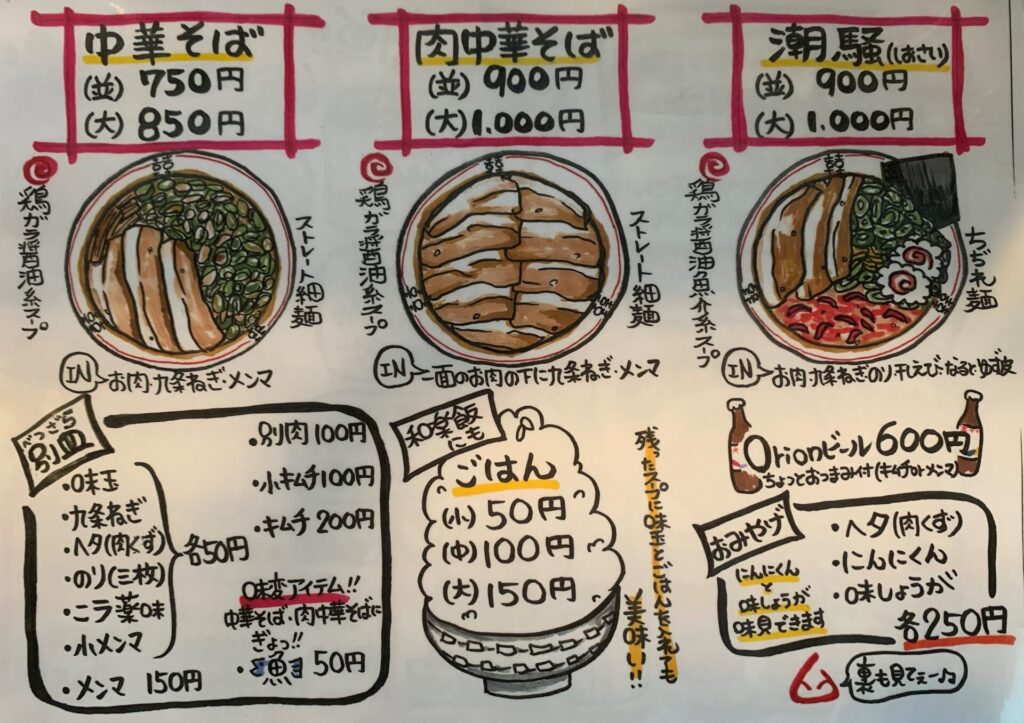 中華そば
(並) 750円
(大) 850円
鶏ガラ醤油系スープ
ストレート細麺
IN お肉・九条ねぎ・メンマ
肉中華そば
(並) 900円
(大) 1.000円
鶏ガラ醤油系スープ
ストレート細麺
IN 一面のお肉の下に九条ねぎ・メンマ
潮騒(しおさい)
(並) 900円
(大) 1.000円
鶏ガラ醤油魚介系スープ
ちぢれ麺
IN お肉・九条ねぎ・のり・干しえび・なると・ゆず皮
べつざら
別皿
・味玉
・九条ねぎ
・ヘタ(肉くず)
・のり(三枚)
・ニラ薬味
・小メンマ
各50円
・メンマ 150円
・別肉 100円
・小キムチ 100円
・キムチ 200円
味変アイテム!!
中華そば・肉中華そばに
ぎょっ!!
・魚 50円
和楽飯
にも
ごはん
(小) 50円
(中) 100円
(大) 150円
残ったスープに味玉とごはんを入れても
美味い!!
Orionビール 600円
ちょっとおつまみ付(キムチorメンマ)
おみやげ
・ヘタ(肉くず)
・にんにくん
・味しょうが
各250円
にんにくん
と
味しょうが
味見できます
裏も見てぇー♪